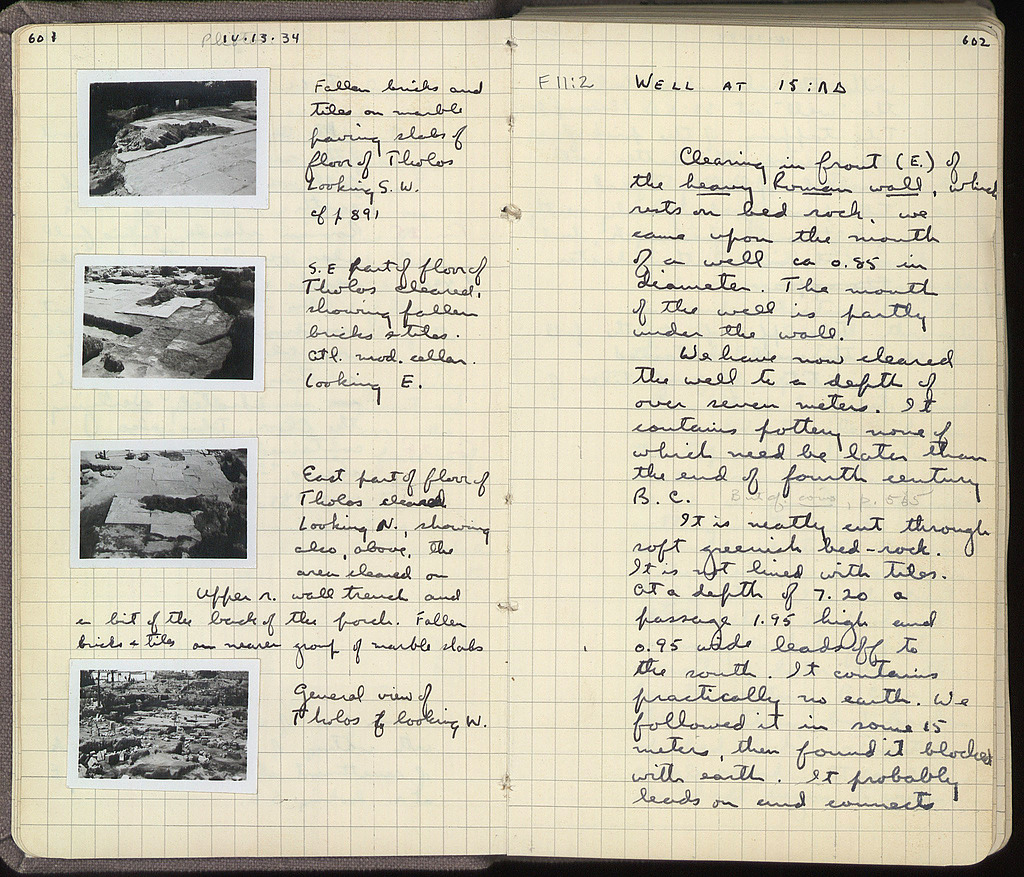 601
14·13·34
Fallen bricks and
tiles on marble
paving slabs of
floor of Tholos
Looking S. W.
cf p 891
S. E part of floor of
Tholos cleared,
showing fallen
bricks & tiles.
mod. cellar.
Looking E.
East part of floor of
Tholos cleared
Looking N., showing
also, above, the
area cleared on
upper r. wall trench and
a bit of the back of the porch. Fallen
bricks & tiles on nearer group of marble slabs
General view of
Tholos looking W.
602
F 11:2 WELL AT 15:
Clearing in front (E.) of
the heavy Roman wall, which
rests on bed rock, we
came upon the mouth
of a well ca 0.85 in
diameter. The mouth
of the well is partly
under the wall.
We have now cleared
the well to a depth of
over seven meters. It
contains pottery none of
which need be later than
the end of fourth century
B. C. But cf. p. 565
It is neatly cut through
soft greenish bed-rock.
It is not lined with tiles.
At a depth of 7.20 a
passage 1.95 high and
0.95 wide leads off to
the south. It contains
practically no earth. We
followed it in some 15
meters, then found it blocked
with earth. It probably
leads on and connects